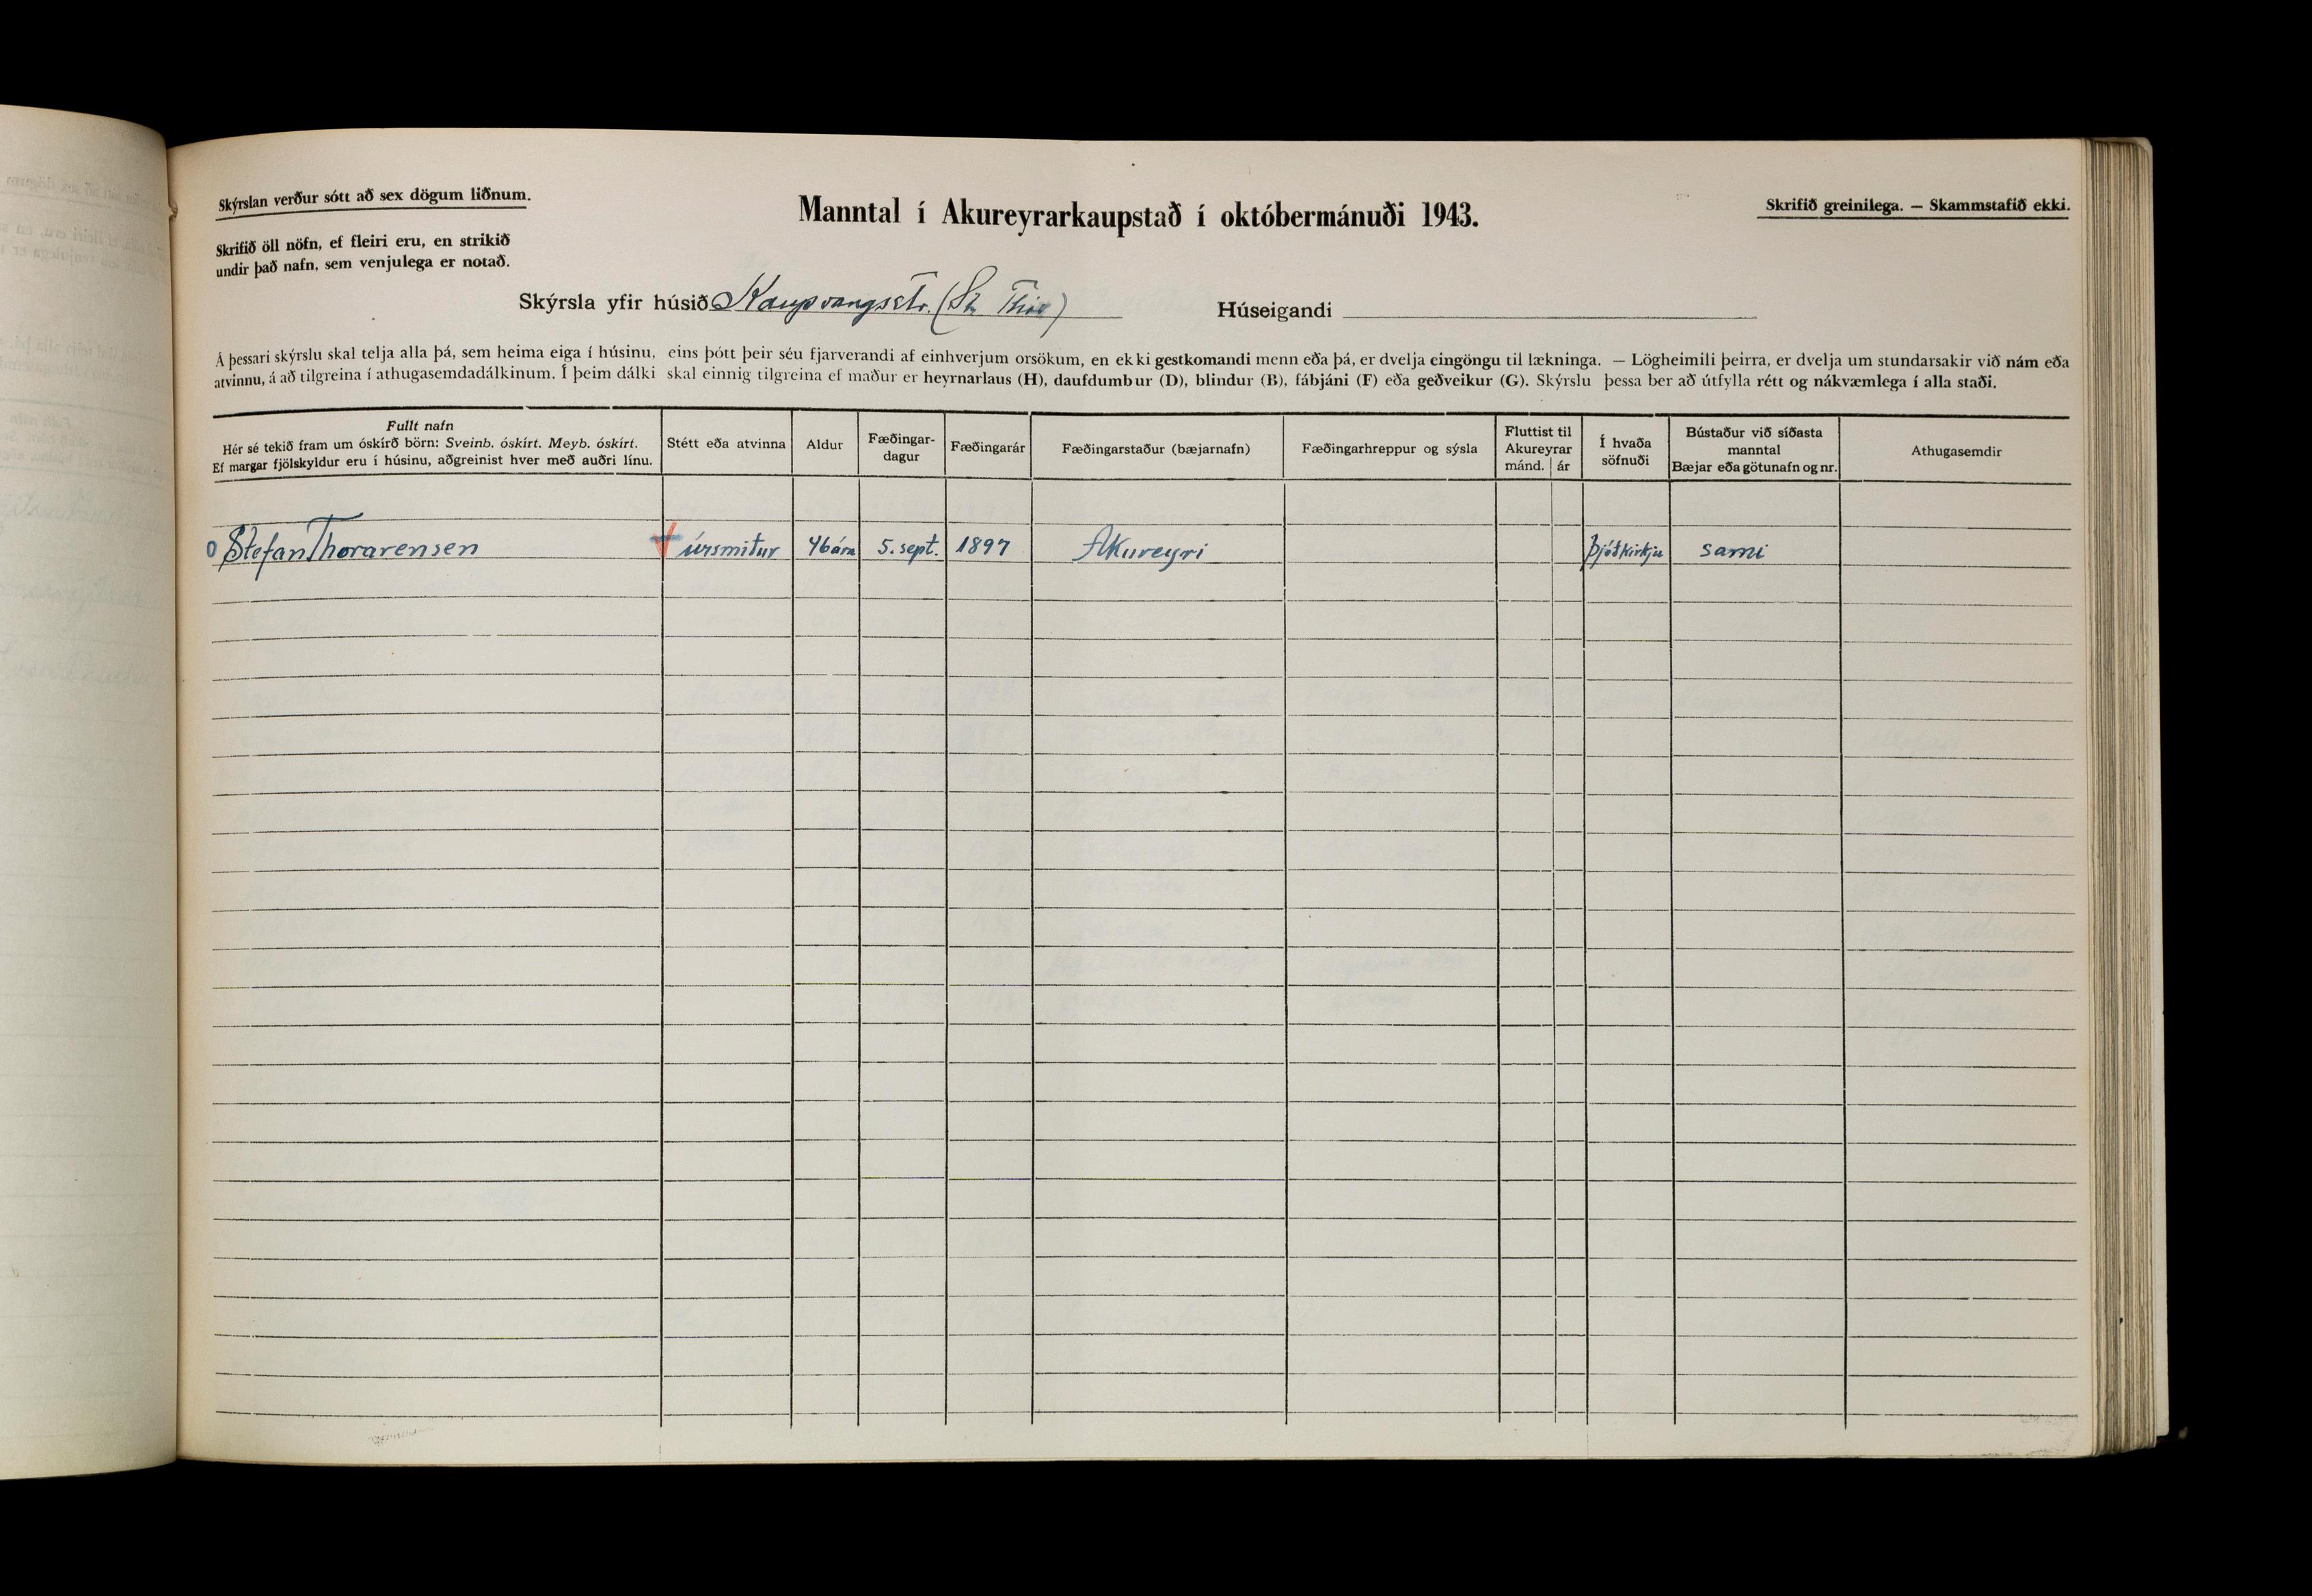 Skýrslan verður sótt að sex dögum liðnum.
Manntal í Akureyrarkaupstað í októbermánuði 1943.
Skrifið greinilega. — Skammstafið ekki.
Skrifið öll nöfn, ef fleiri eru, en strikið
undir það nafn, sem venjulega er notað.
Skýrsla yfir húsið Kaupvangsstr. (St. Thor)
Húseigandi
Á þessari skýrslu skal telja alla þá, sem heima eiga í húsinu, eins þótt þeir séu fjarverandi af einhverjum orsökum, en ekki gestkomandi menn eða þá, er dvelja eingöngu til lækninga. — Lögheimili þeirra, er dvelja um stundarsakir við nám eða
atvinnu, á að tilgreina í athugasemdadálkinum. Í þeim dálki skal einnig tilgreina ef maður er heyrnarlaus (H), daufdumbur (D), blindur (B), fábjáni (F) eða geðveikur (G). Skýrslu þessa ber að útfylla rétt og nákvæmlega í alla staði.
Fullt nafn
Hér sé tekið fram um óskírð börn: Sveinb. óskírt. Meyb. óskírt.
Ef margar fjölskyldur eru í húsinu, aðgreinist hver með auðri línu.
Stétt eða atvinna
Aldur
Fæðingar-
dagur
Fæðingarár
Fæðingarstaður (bæjarnafn)
Fæðingarhreppur og sýsla
Fluttist til
Akureyrar
mánd. ár
Í hvaða
söfnuði
Bústaður við síðasta
manntal
Bæjar eða götunafn og nr.
Athugasemdir
o Stefan Thorarensen úrsmiður 46 ára 5. sept. 1897 Akureyri þjóðkirkju sami